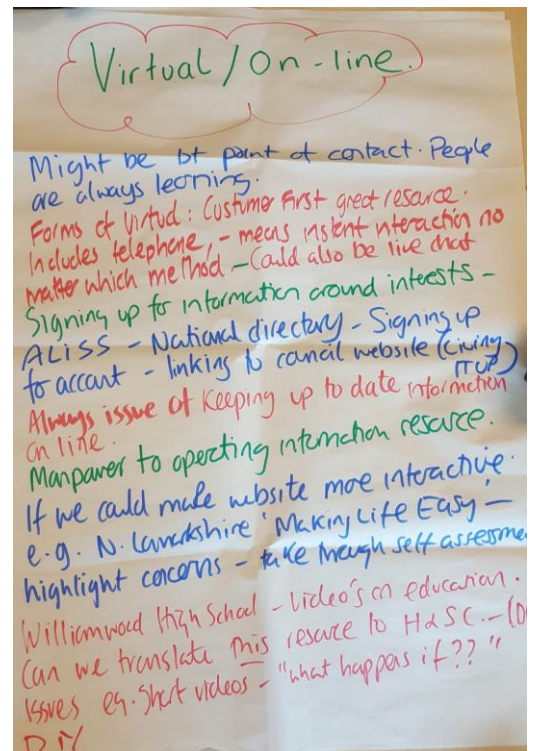 Virtual / On-line.
Might be 1st point of contact. People
are always learning.
Forms of Virtual : Customer First great resource.
Includes telephone, - means instant interaction no
matter which method - Could also be live chat
Signing up for information around interests -
ALISS - National directory - Signing up
for account - linking to council website (Living
ITUP)
Always issue of keeping up to date information
on line.
Manpower to operating information resource.
If we could make website more interactive.
e.g. N. Lanarkshire 'Making Life Easy' -
highlight concerns - take through self assessme
Williamwood High School - Video's on education.
Can we translate this resource to H&SC. - (D
Issues eg. Short videos - "what happens if??"
DIY